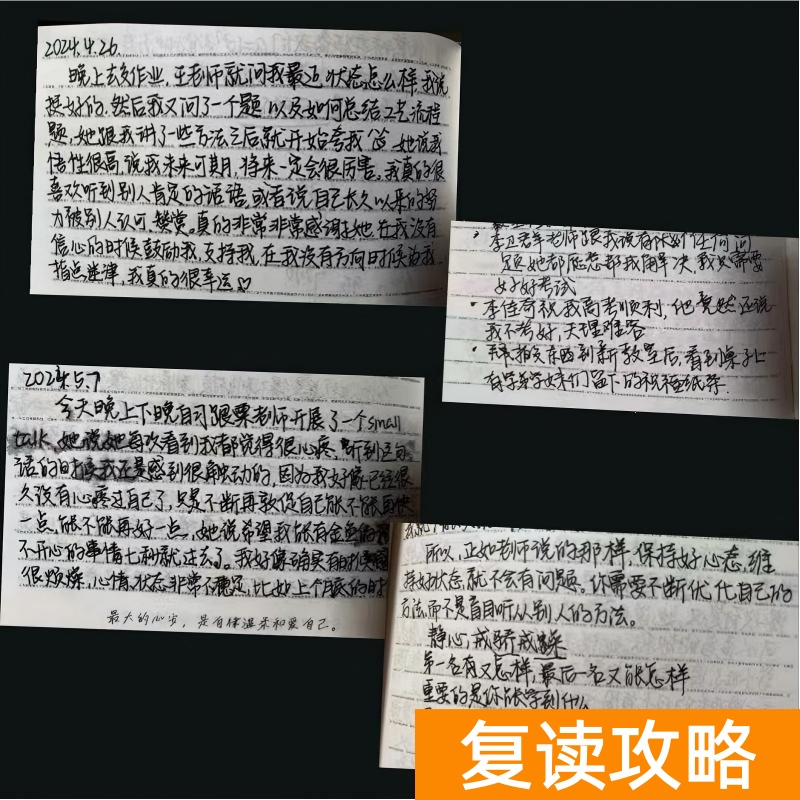 2024.4.26
晚上去交作业,王老师就问我最近状态怎么样,我说
挺好的,然后我又问了一个题以及如何总结工艺流程
题,她跟我讲了一些方法之后就开始夸我,她说我
悟性很高,说我未来可期,将来一定会很厉害。我真的很
喜欢听到别人肯定的话语,或者说自己长久以来的努
力被别人认可、赞赏。真的非常非常感谢她在我没有
信心的时候鼓励我,支持我,在我没有方向时候为我
指点迷津,我真的很幸运♡
老师跟我说有什么任何问
题她都愿意帮我解决,我只需要
好好考试
李佳奇祝我高考顺利,他竟然还说
我不考好,天理难容
东西到新教室后,看到桌子上
有学弟学妹们留下的祝福纸条
2024.5.7
今天晚上下晚自习跟栗老师开展了一个small
talk,她说她每次看到我都觉得很心疼,听到这句
话的时候我还是感到很触动的,因为我好像已经很
久没有心疼过自己了,只是不断再敦促自己能不能再快
一点,能不能再好一点,她说希望我能有金鱼的
不开心的事情七秒就过去了。我好像确实有时候
很烦燥,心情、状态非常不稳定,比如上个月底的时
最大的心安,是自律温柔和爱自己。
所以,正如老师说的那样,保持好心态,维
持好状态,就不会有问题。你需要不断优化自己的
方法而不是盲目听从别人的方法。
静心,戒骄戒躁
第一名有又怎样,最后一名又能怎样
重要的是你能学到什么
复读攻略